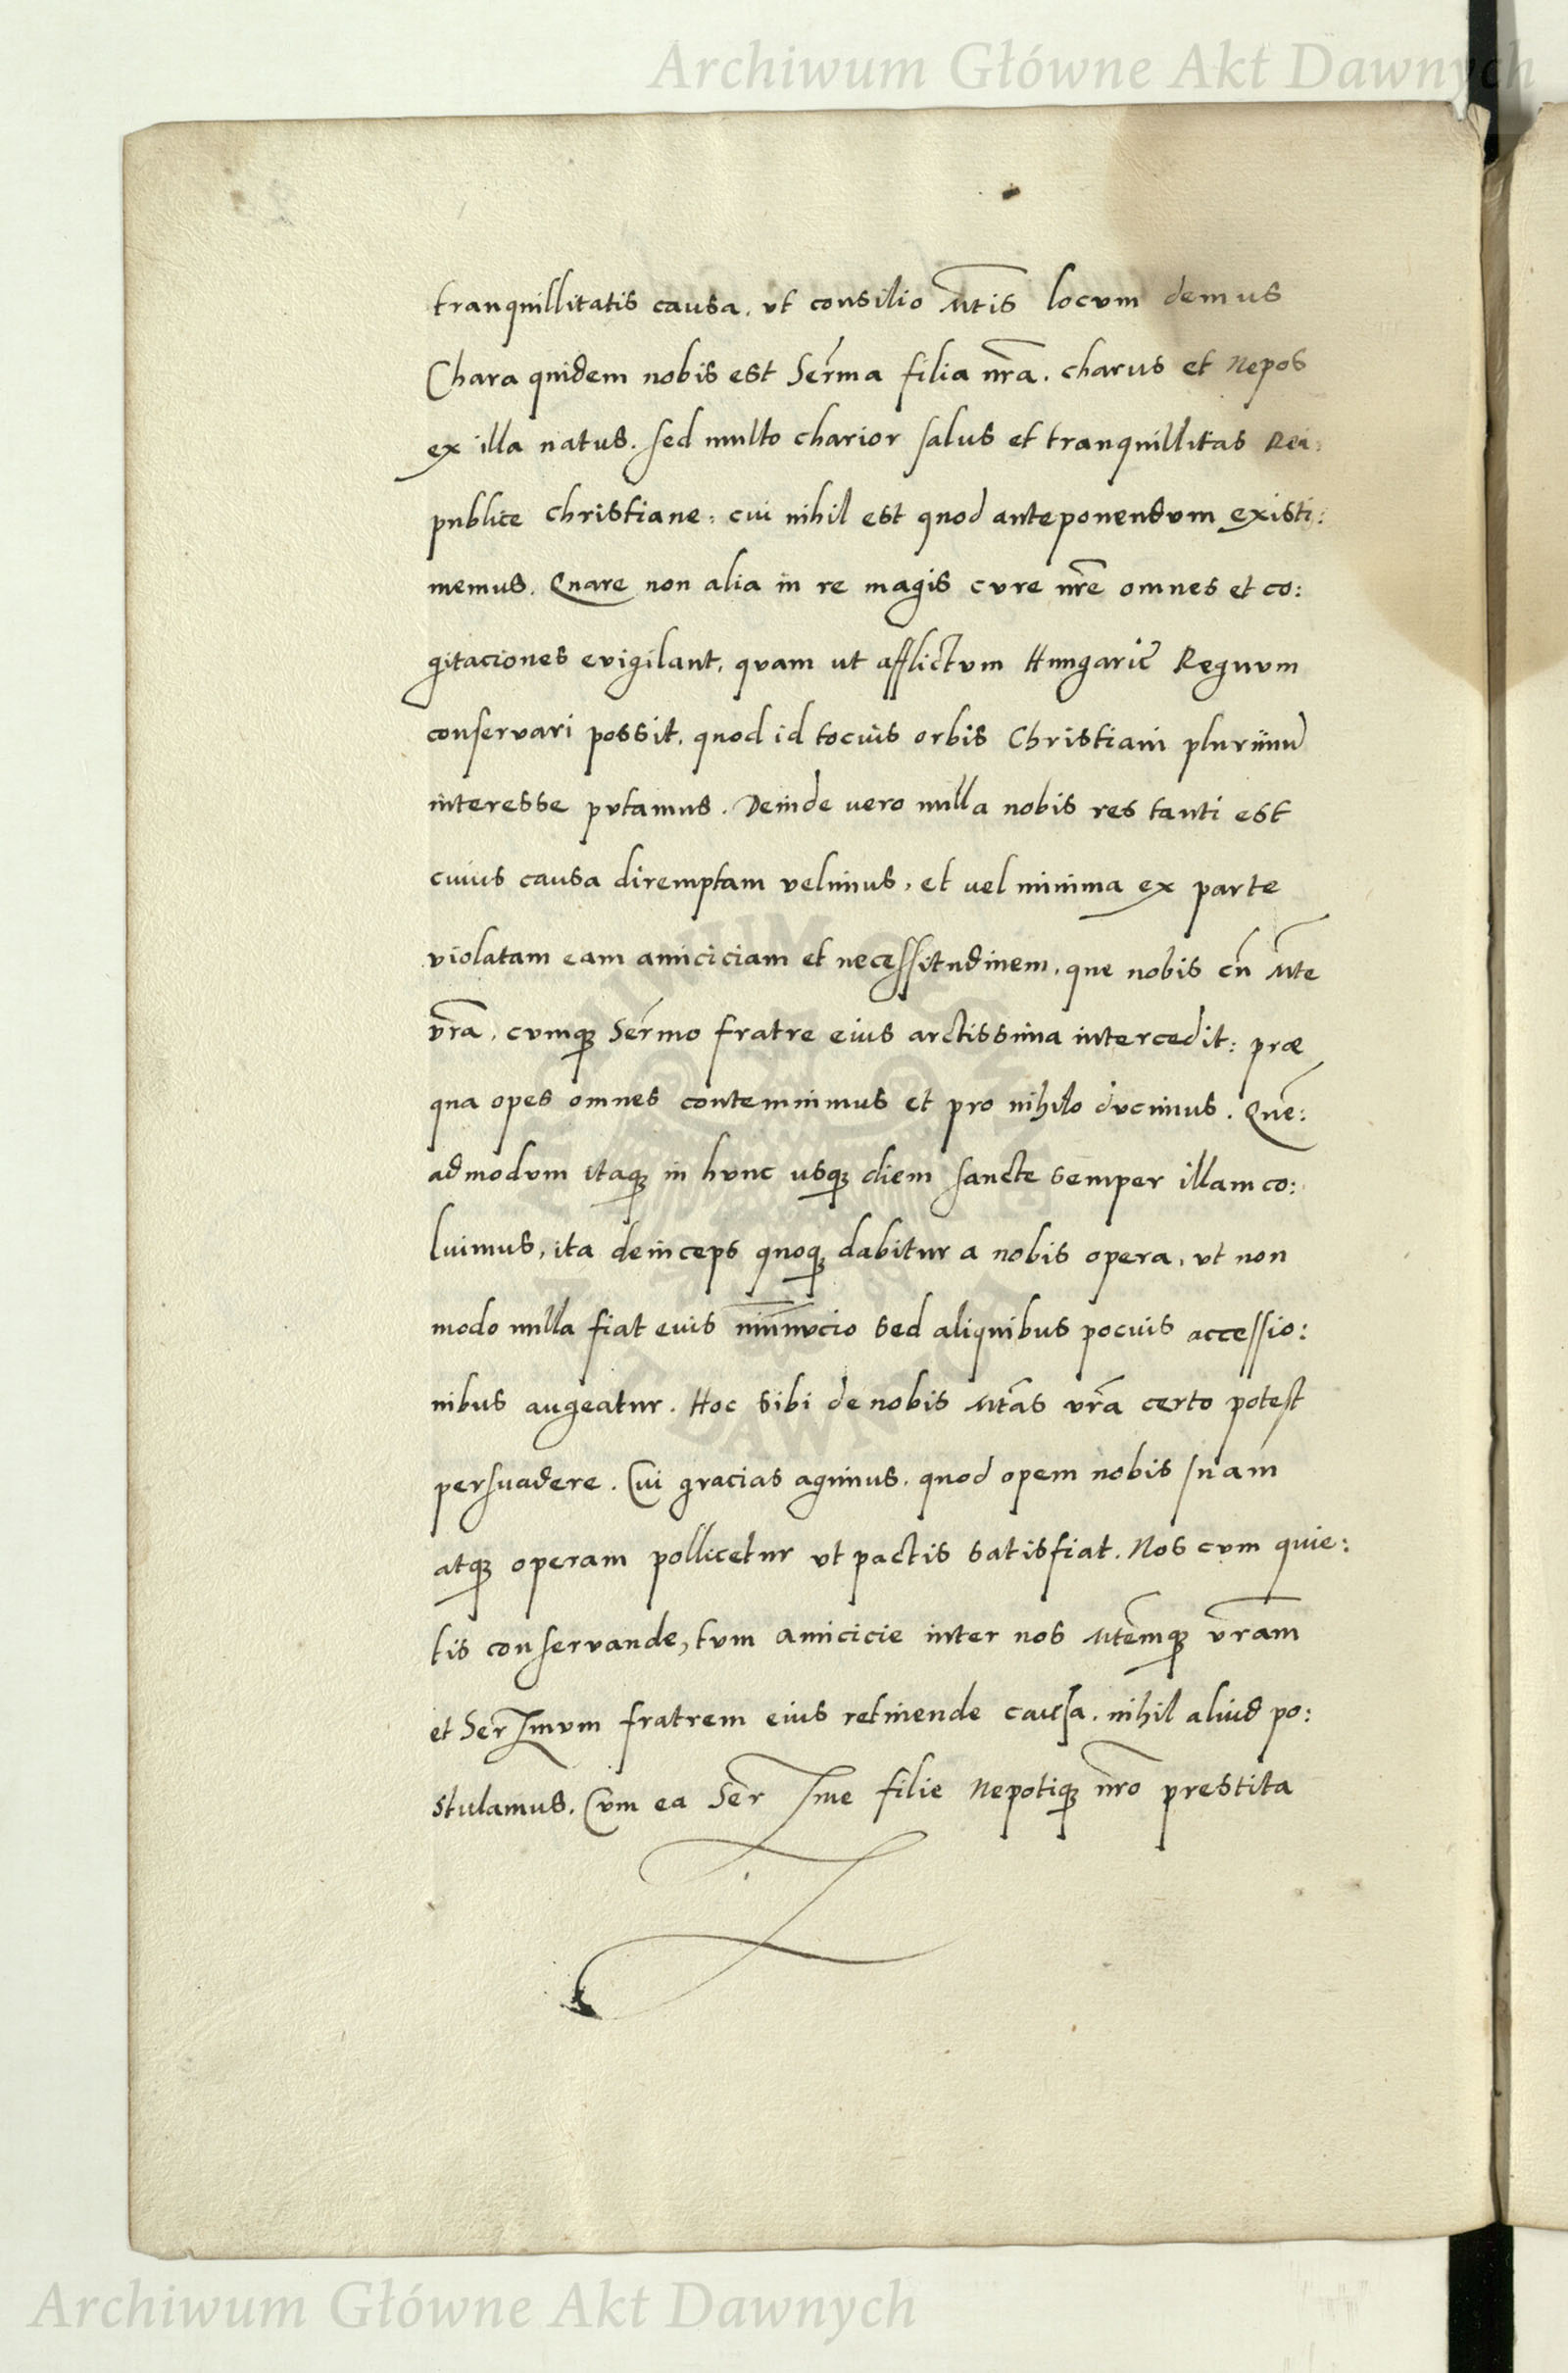 Archiwum Główne Akt Dawnych
tranquillitatis causa. vt consilio Mtis locum demus
Chara quidem nobis est Serma filia nra. charus et Nepos
ex illa natus. sed multo charior salus et tranquillitas Rei:
publice christiane: cui nihil est quod anteponendum existi:
memus. Quare non alia in re magis cure nre omnes et co:
gitaciones evigilant, quam ut afflictum Hungarie Regnum
conservari possit, quod id tocius orbis Christiani plurimu
interesse putamus. Deinde vero nulla nobis res tanti est
cuius causa diremptam velimus, et vel minima ex parte
violatam eam amiciciam et necessitudinem, que nobis cu Mte
vra, cumque Sermo fratre eius arctissima intercedit: præ
qua opes omnes contemnimus et pro nihilo ducimus. Que:
admodum itaque in hunc usque diem sancte semper illam co:
luimus, ita deinceps quoque dabitur a nobis opera, vt non
modo nulla fiat eius minucio sed aliquibus pocius accessio:
nibus augeatur. Hoc sibi de nobis Mtas vra certo potest
persuadere. Cui gracias agimus, quod opem nobis suam
atque operam pollicetur vt pactis satisfiat. Nos cum quie:
tis conservande, tum amicicie inter nos Mtemque vram
et Serimum fratrem eius retinende causa, nihil aliud po:
stulamus. Cum ea Ser Ime filie Nepotique nro prestita
ARCHIWUM GŁÓWNE AKT DAWNYCH
Archiwum Główne Akt Dawnych